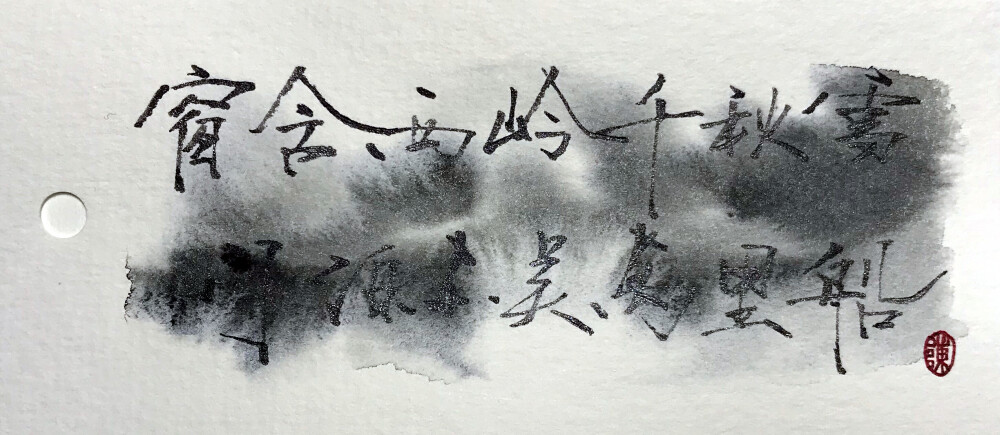 窗含西岭千秋雪
门泊东吴万里船
陳